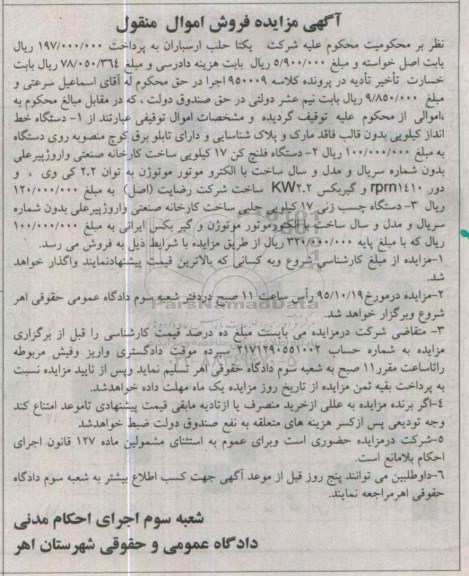 آگهی مزایده فروش اموال منقول
نظر بر محکومیت محکوم علیه شرکت یکتا حلب ارسباران به پرداخت ۱۹۷/۰۰۰/۰۰۰ ریال
بابت اصل خواسته و مبلغ ۵/۹۰۰/۰۰۰ ریال بابت هزینه دادرسی و مبلغ ۷۸/۰۵۰/۳۶۴ ریال بابت
خسارت تأخیر تأدیه در پرونده کلاسه ۹۵۰۰۰۹ اجرا در حق محکوم له آقای اسماعیل سرعتی و
مبلغ ۹/۸۵۰/۰۰۰ ریال بابت نیم عشر دولتی در حق صندوق دولت ، که در مقابل مبالغ محکوم به
،اموالی از محکوم علیه توقیف گردیده و مشخصات اموال توقیفی عبارتند از ۱- دستگاه خط
انداز کیلویی بدون قالب فاقد مارک و پلاک شناسایی و دارای تابلو برق کوچ منصوبه روی دستگاه
به مبلغ ۱۰۰/۰۰۰/۰۰۰ ریال ۲- دستگاه فلنچ کن ۱۷ کیلویی ساخت کارخانه صنعتی واروژپیرعلی
بدون شماره سریال و مدل و سال ساخت با الکترو موتور موتوژن به توان ۲.۲ کی وی ، و
دور rpm۱۴۱۰ و گیربکس KW۲.۲ ساخت شرکت رضایت (اصل) به مبلغ ۱۲۰/۰۰۰/۰۰۰
ریال ۳- دستگاه چسب زنی ۱۷ کیلویی حلبی ساخت کارخانه صنعتی واروژپیرعلی بدون شماره
سریال و مدل و سال ساخت باالکتورموتور موتوژن و گیر بکس ایرانی به مبلغ ۱۰۰/۰۰۰/۰۰۰
ریال که با مبلغ پایه ۳۲۰/۰۰۰/۰۰۰ ریال از طریق مزایده با شرایط ذیل به فروش می رسد.
۱-مزایده از مبلغ کارشناسی شروع وبه کسانی که بالاترین قیمت پیشنهادنمایند واگذار خواهد
شد.
۲-مزایده درمورخ۹۵/۱۰/۱۹ رأس ساعت ۱۱ صبح دردفتر شعبه سوم دادگاه عمومی حقوقی اهر
شروع وبرگزار خواهد شد.
۳- متقاضی شرکت درمزایده می بایست مبلغ ده درصد قیمت کارشناسی را قبل از برگزاری
مزایده به شماره حساب ۲۱۷۱۲۹۰۵۵۱۰۰۲ سپرده موقت دادگستری واریز وفیش مربوطه
راتاساعت مقرر ۱۱ صبح به شعبه سوم دادگاه حقوقی اهر تسلیم نماید وپس از تایید مزایده نسبت
به پرداخت بقیه ثمن مزایده از تاریخ روز مزایده یک ماه مهلت داده خواهدشد.
۴-اگر برنده مزایده به عللی ازخرید منصرف یا ازتادیه مابقی قیمت پیشنهادی تاموعد امتناع کند
وجه تودیعی پس ازکسر هزینه های متعلقه به نفع صندوق دولت ضبط خواهدشد
۵-شرکت درمزایده حضوری است وبرای عموم به استثنای مشمولین ماده ۱۲۷ قانون اجرای
احکام بلامانع است.
۶-داوطلبین می توانند پنج روز قبل از موعد آگهی جهت کسب اطلاع بیشتر به شعبه سوم دادگاه
حقوقی اهرمراجعه نمایند.
شعبه سوم اجرای احکام مدنی
دادگاه عمومی و حقوقی شهرستان اهر